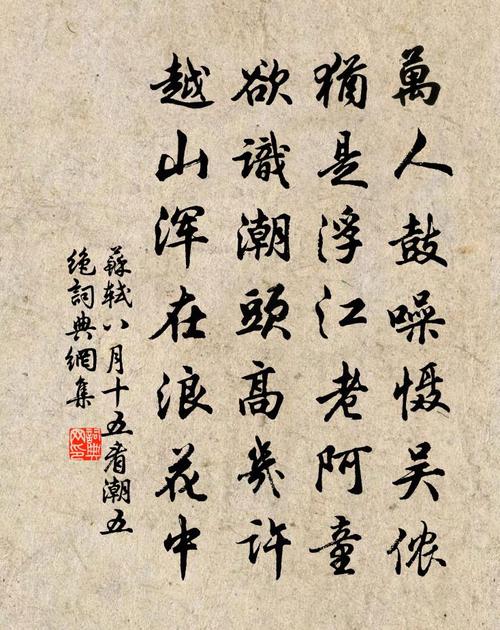 萬人鼓噪慑吴侬
猶是浮江老阿童
欲識潮頭高幾許
越山浑在浪花中
蘇軾八月十五看潮五
絶詞典網集